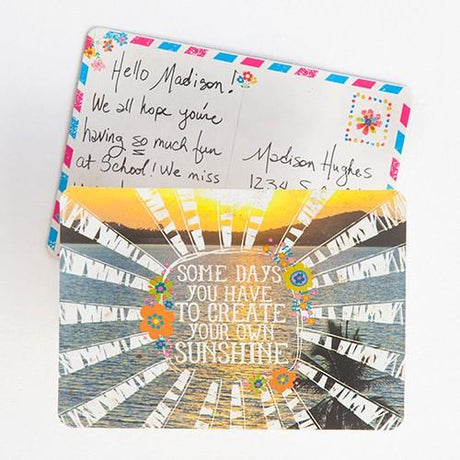 Hello Madison!
We all hope you're
having so much fun
at School! We miss
Madison Hughes
1234
SOME DAYS
YOU HAVE
TO CREATE
YOUR OWN
SUNSHINE